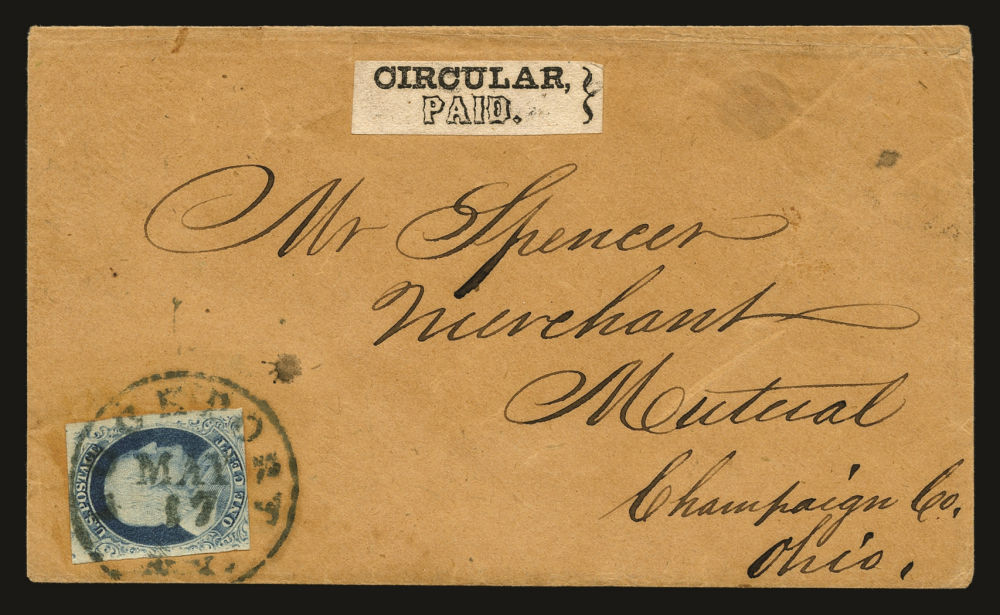 CIRCULAR,
PAID.
Mr Spencer
Merchant
Mutual
Champaign Co.
Ohio.
U.S. POSTAGE
ONE CENT
MAY
17
N.Y.